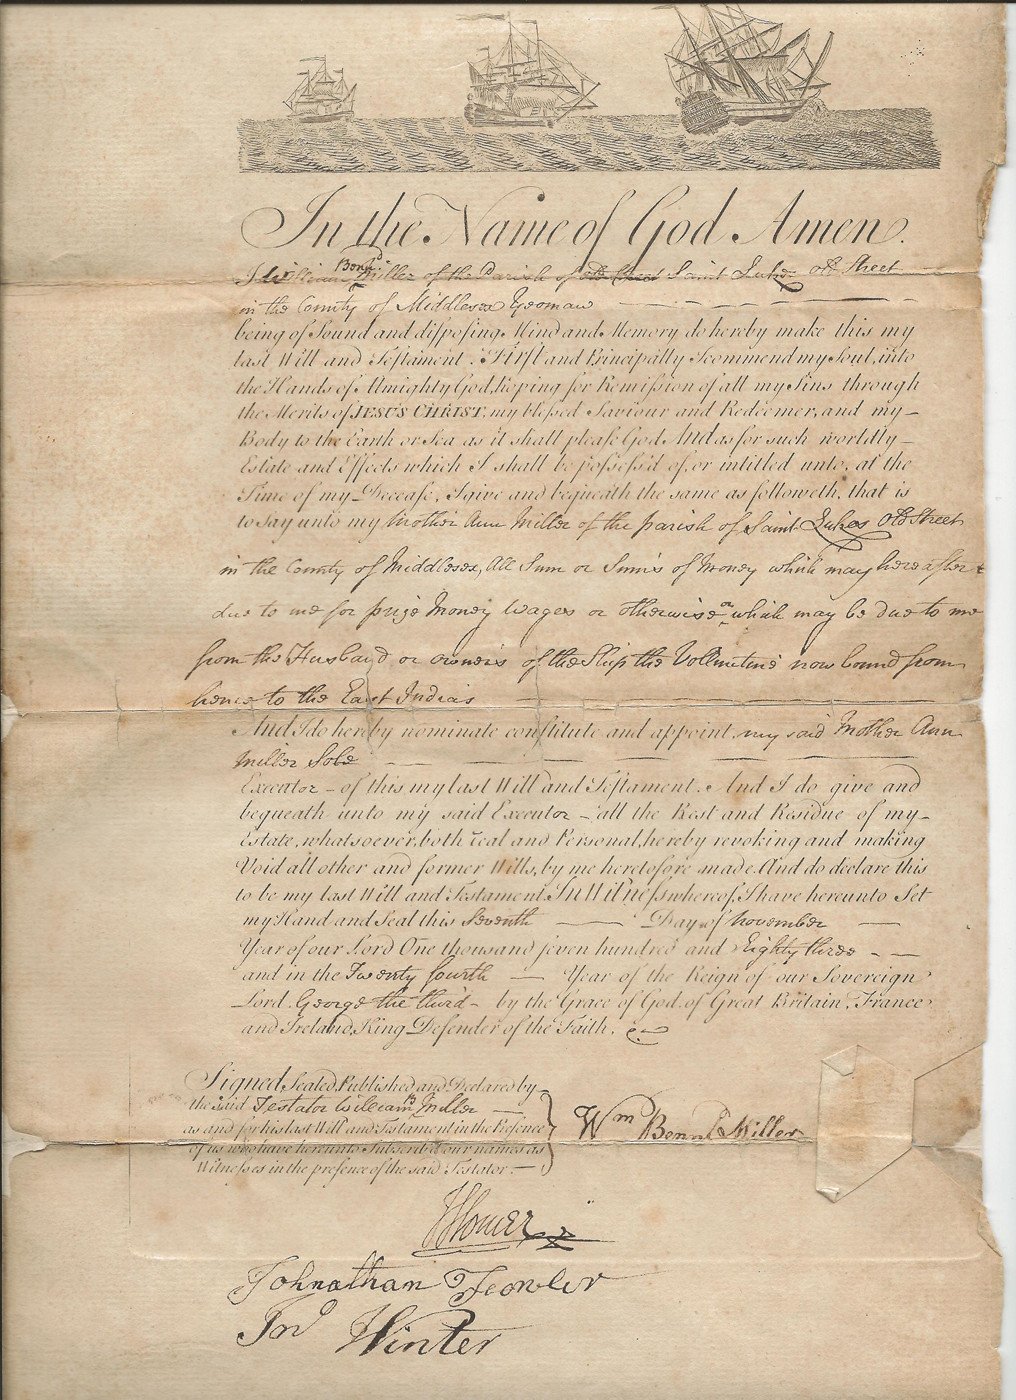 In the Name of God Amen.
I William Benn^d Miller of the Parish of old Street Saint Lukes old Street
in the County of Middlesex Yeoman
being of Sound and disposing Mind and Memory do hereby make this my
last Will and Testament. First and Principally I commend my Soul into
the Hands of Almighty God, hoping for Remission of all my Sins through
the Merits of JESUS CHRIST, my blessed Saviour and Redeemer, and my
Body to the Earth or Sea as it shall please God And as for such worldly
Estate and Effects which I shall be possess'd of, or intitled unto, at the
Time of my Decease, I give and bequeath the same as followeth, that is
to say unto my Mother Ann Miller of the parish of Saint Lukes Old Street
in the County of Middlesex, All Sum or Sum's of Money which may hereafter
due to me for prize Money Wages or otherwise or which may be due to me
from the Husband or owners of the Ship the Vollintine now bound from
hence to the East Indias
And I do hereby nominate constitute and appoint my said Mother Ann
Miller Sole
Executor of this my last Will and Testament. And I do give and
bequeath unto my said Executor all the Rest and Residue of my
Estate, whatsoever, both real and Personal, hereby revoking and making
Void all other and former Wills, by me heretofore made. And do declare this
to be my last Will and Testament. In Witness whereof, I have hereunto Set
my Hand and Seal this Seventh Day of November
Year of our Lord One thousand seven hundred and Eighty three
and in the Twenty fourth Year of the Reign of our Sovereign
Lord George the third by the Grace of God, of Great Britain, France
and Ireland, King, Defender of the Faith, &c.
Signed, Sealed, Published and Declared by
the said Testator William B Miller
as and for his last Will and Testament in the Presence
of us who have hereunto Subscrib'd our names as
Witnesses in the presence of the said Testator.
Wm Bennd Miller
Johnathan Fowler
Jno Winter